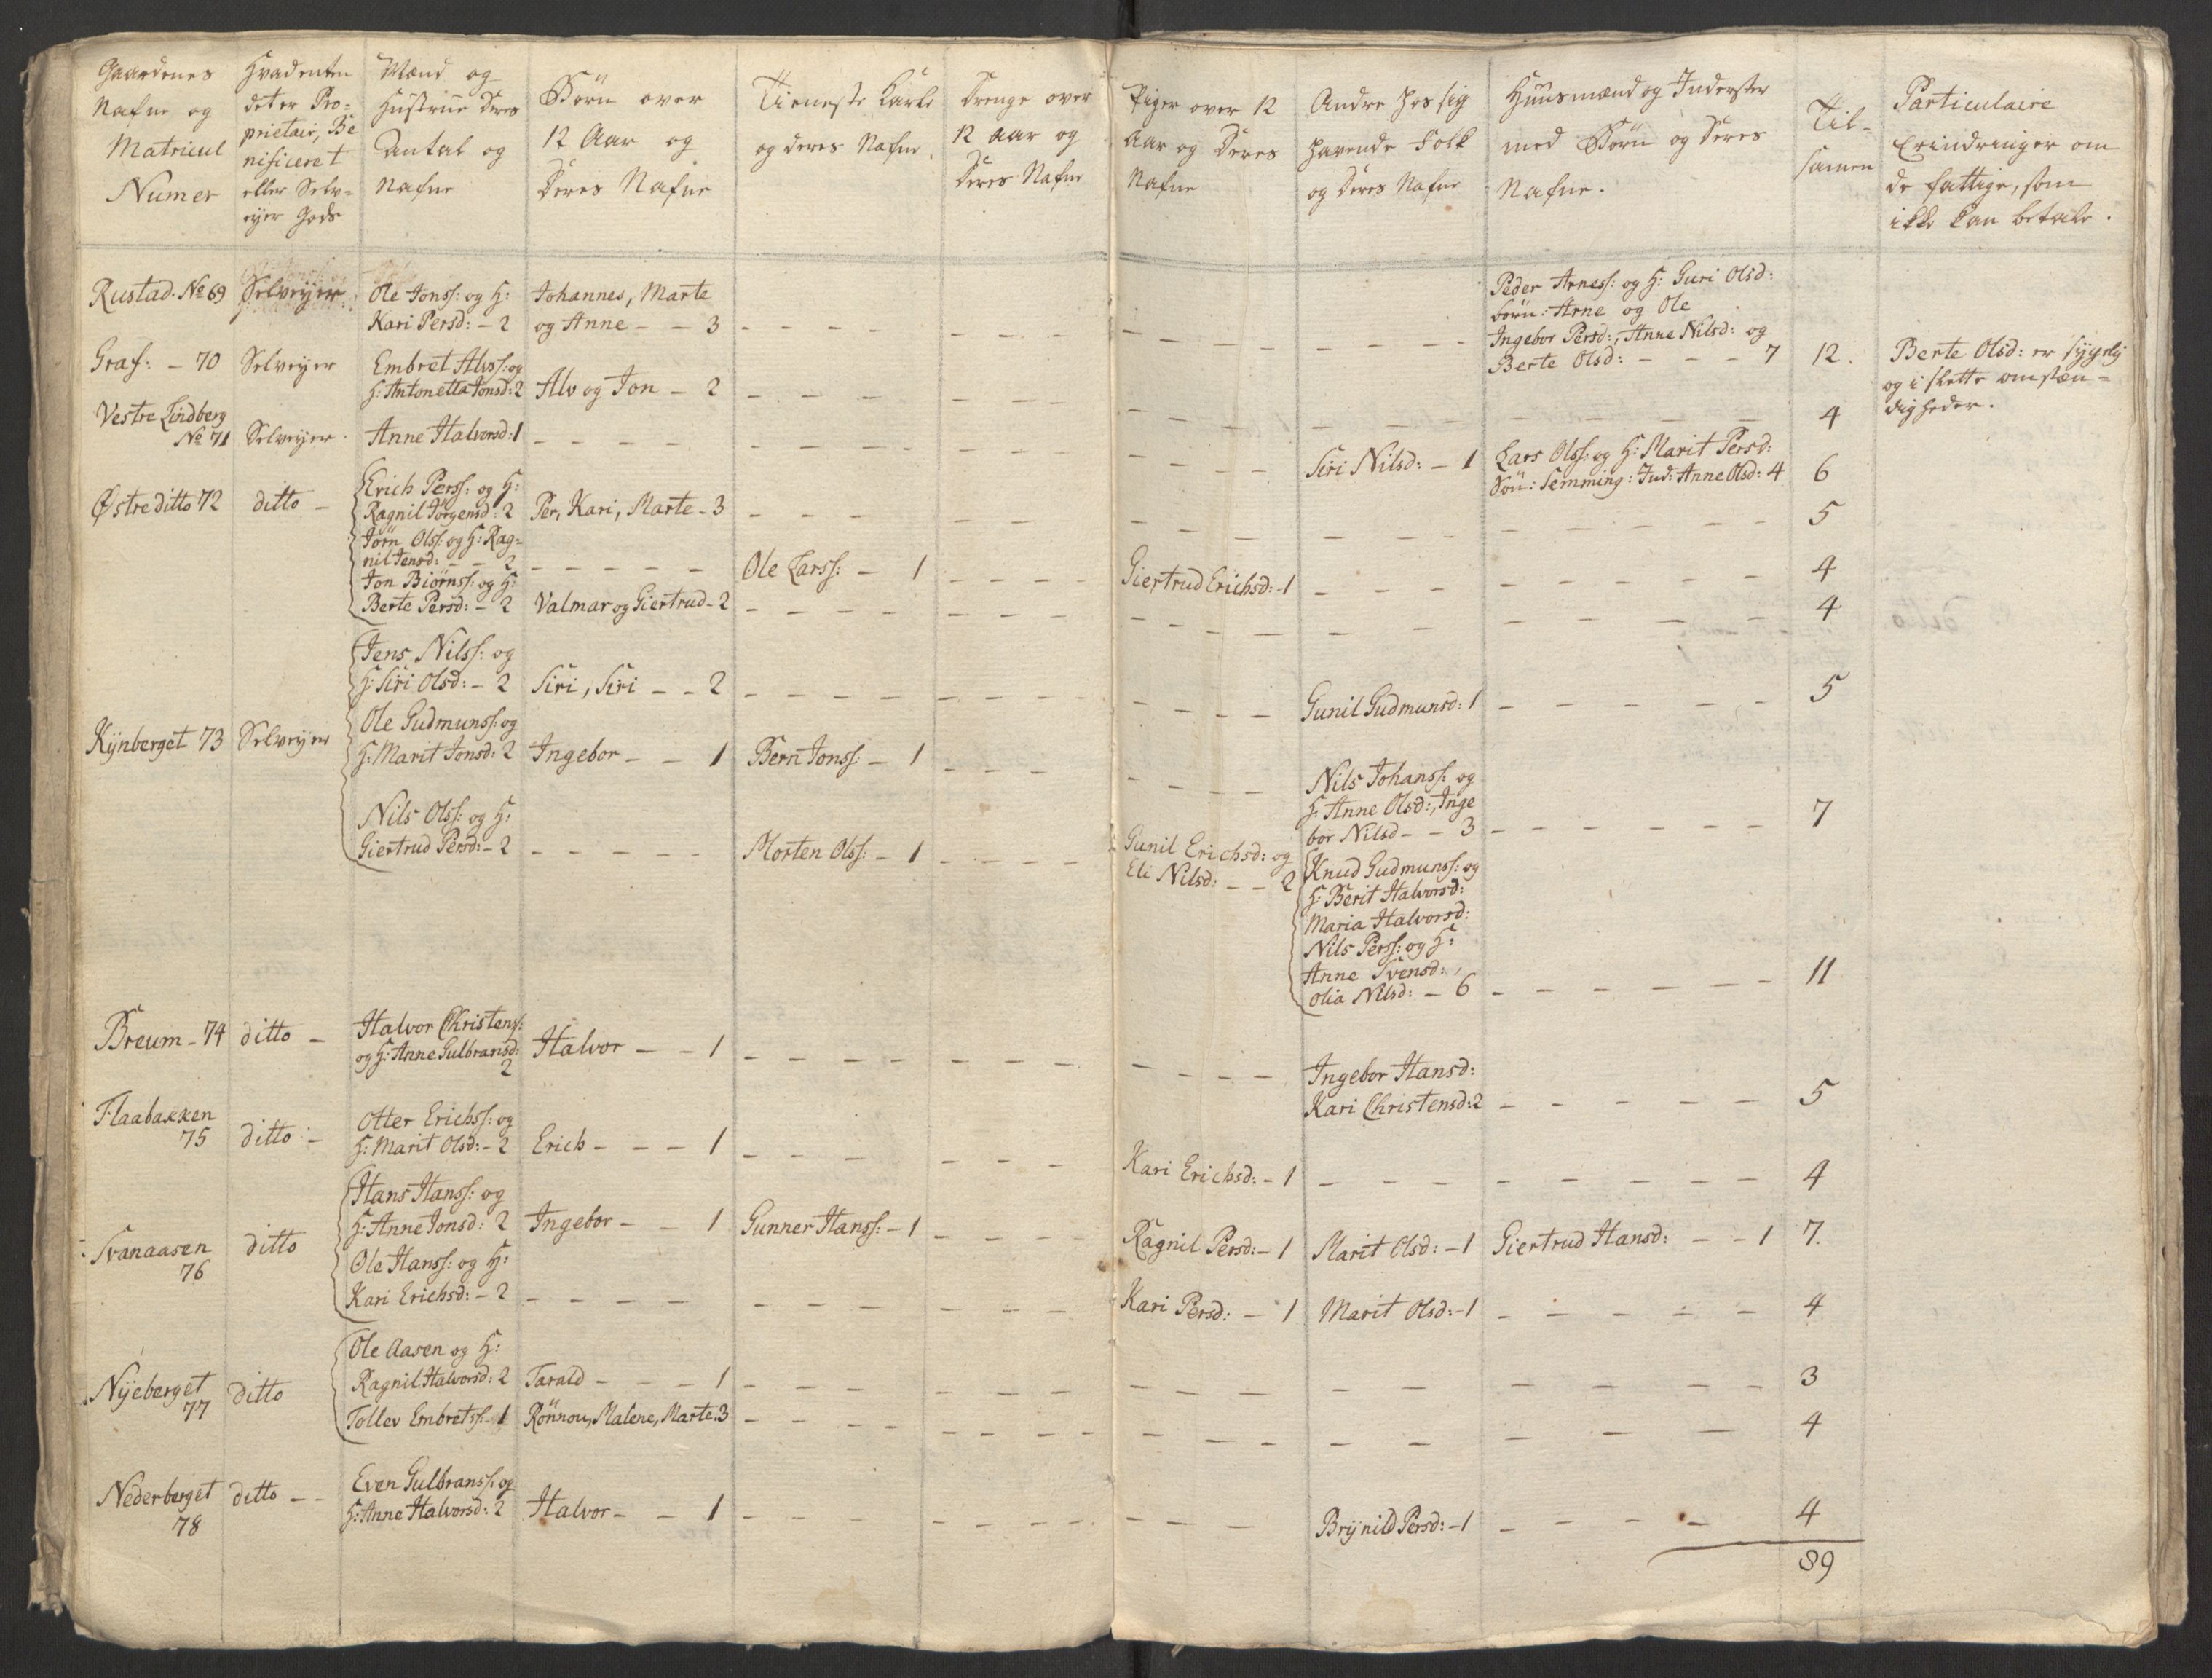 Gaardenes
Nafne og
Matricul
Numer
Hvadenten
det er Pro-
prietair, Be
nificeret
eller Selv-
eyer Gods
Mænd og
Hustrue deres
Antal og
Nafne
Börn over
12 Aar og
Deres Nafne
Tieneste Karle
og deres Nafne
Drenge over
12 Aar og
Deres Nafne
Piger over 12
Aar og Deres
Nafne
Andre hos sig
havende Folk
og Deres Nafne
Huusmænd og Inderster
med Börn og Deres
Nafne.
Til-
samen
Particulaire
Erindringer om
de fattige, som
ikke kan betale.
Rustad. No 69 Selveyer Ole Jonss: og H: Johannes, Marte
Kari Persd: - 2 og Anne - - 3
Peder Arness: og H: Guri Olsd:
börn: Arne og Ole
Ingebor Persd:, Anne Nilsd: og
Berte Olsd: - - - 7 12.
Berte Olsd: er sygelig
og i slette omstæn-
digheder.
Graf: - 70 Selveyer Embret Alvss: og
H: Antonetta Jonsd: 2 Alv og Jon - 2 4
Vestre Lindberg
No 71 Selveyer. Anne Halvorsd: 1
Siri Nilsd: - 1 Lars Olss: og H: Marit Persd:
Sön: Semming: Ind: Anne Olsd: 4 6
Østre ditto 72 ditto - Erich Perss: og H:
Ragnil Jörgensd: 2 Per, Kari, Marte - 3 5
Jörn Olss: og H: Rag-
nil Jensd: - - 2 Ole Larss: - 1 Giertrud Erichsd: - 1 4
Jon Biörnss: og H:
Berte Persd: - 2 Valmar og Giertrud - 2 4
Kÿnberget 73 Selveyer
Jens Nilss: og
H: Siri Olsd: - 2 Siri, Siri - - 2 Gunil Gudmunsd: 1 5
Ole Gudmunss: og
H: Marit Jonsd: 2 Ingebor - - 1 Bern Jonss: - 1
Nils Johanss: og
H: Anne Olsd:, Inge
bor Nilsd - - 3 7
Nils Olss: og H:
Giertrud Persd: - 2 Morten Olss: - 1 Gunil Erichsd: og
Eli Nilsd: - - 2
Knud Gudmunss: og
H: Berit Halvorsd:
Maria Halvorsd:
Nils Perss: og H:
Anne Svensd:,
Olia Nilsd: - 6 11
Breum - 74 ditto - Halvor Christenss:
og H: Anne Gulbransd: 2 Halvor - - 1
Ingebor Hansd:
Kari Christensd: 2 5
Flaabakken
75 ditto - Otter Erichss: og
H: Marit Olsd: - 2 Erich - - - 1 Kari Erichsd: - 1 4
Svanaasen
76 ditto Hans Hanss: og
H: Anne Jonsd: 2 Ingebor - - 1 Gunner Hanss: - 1 Ragnil Persd: - 1 Marit Olsd: - 1 Giertrud Hansd: - - 1 7.
Ole Hanss: og H:
Kari Erichsd: - 2 Kari Persd: - 1 Marit Olsd: - 1 4
Nÿeberget
77 ditto Ole Aasen og H:
Ragnil Halvorsd: 2 Tarald - - - 1 3
Tollev Embretss: - 1 Rönnou, Malene, Marte. 3 4
Nederberget
78 ditto - - Even Gulbranss: og
H: Anne Halvorsd: 2 Halvor - - 1 Brÿnild Persd: - 1 4
89